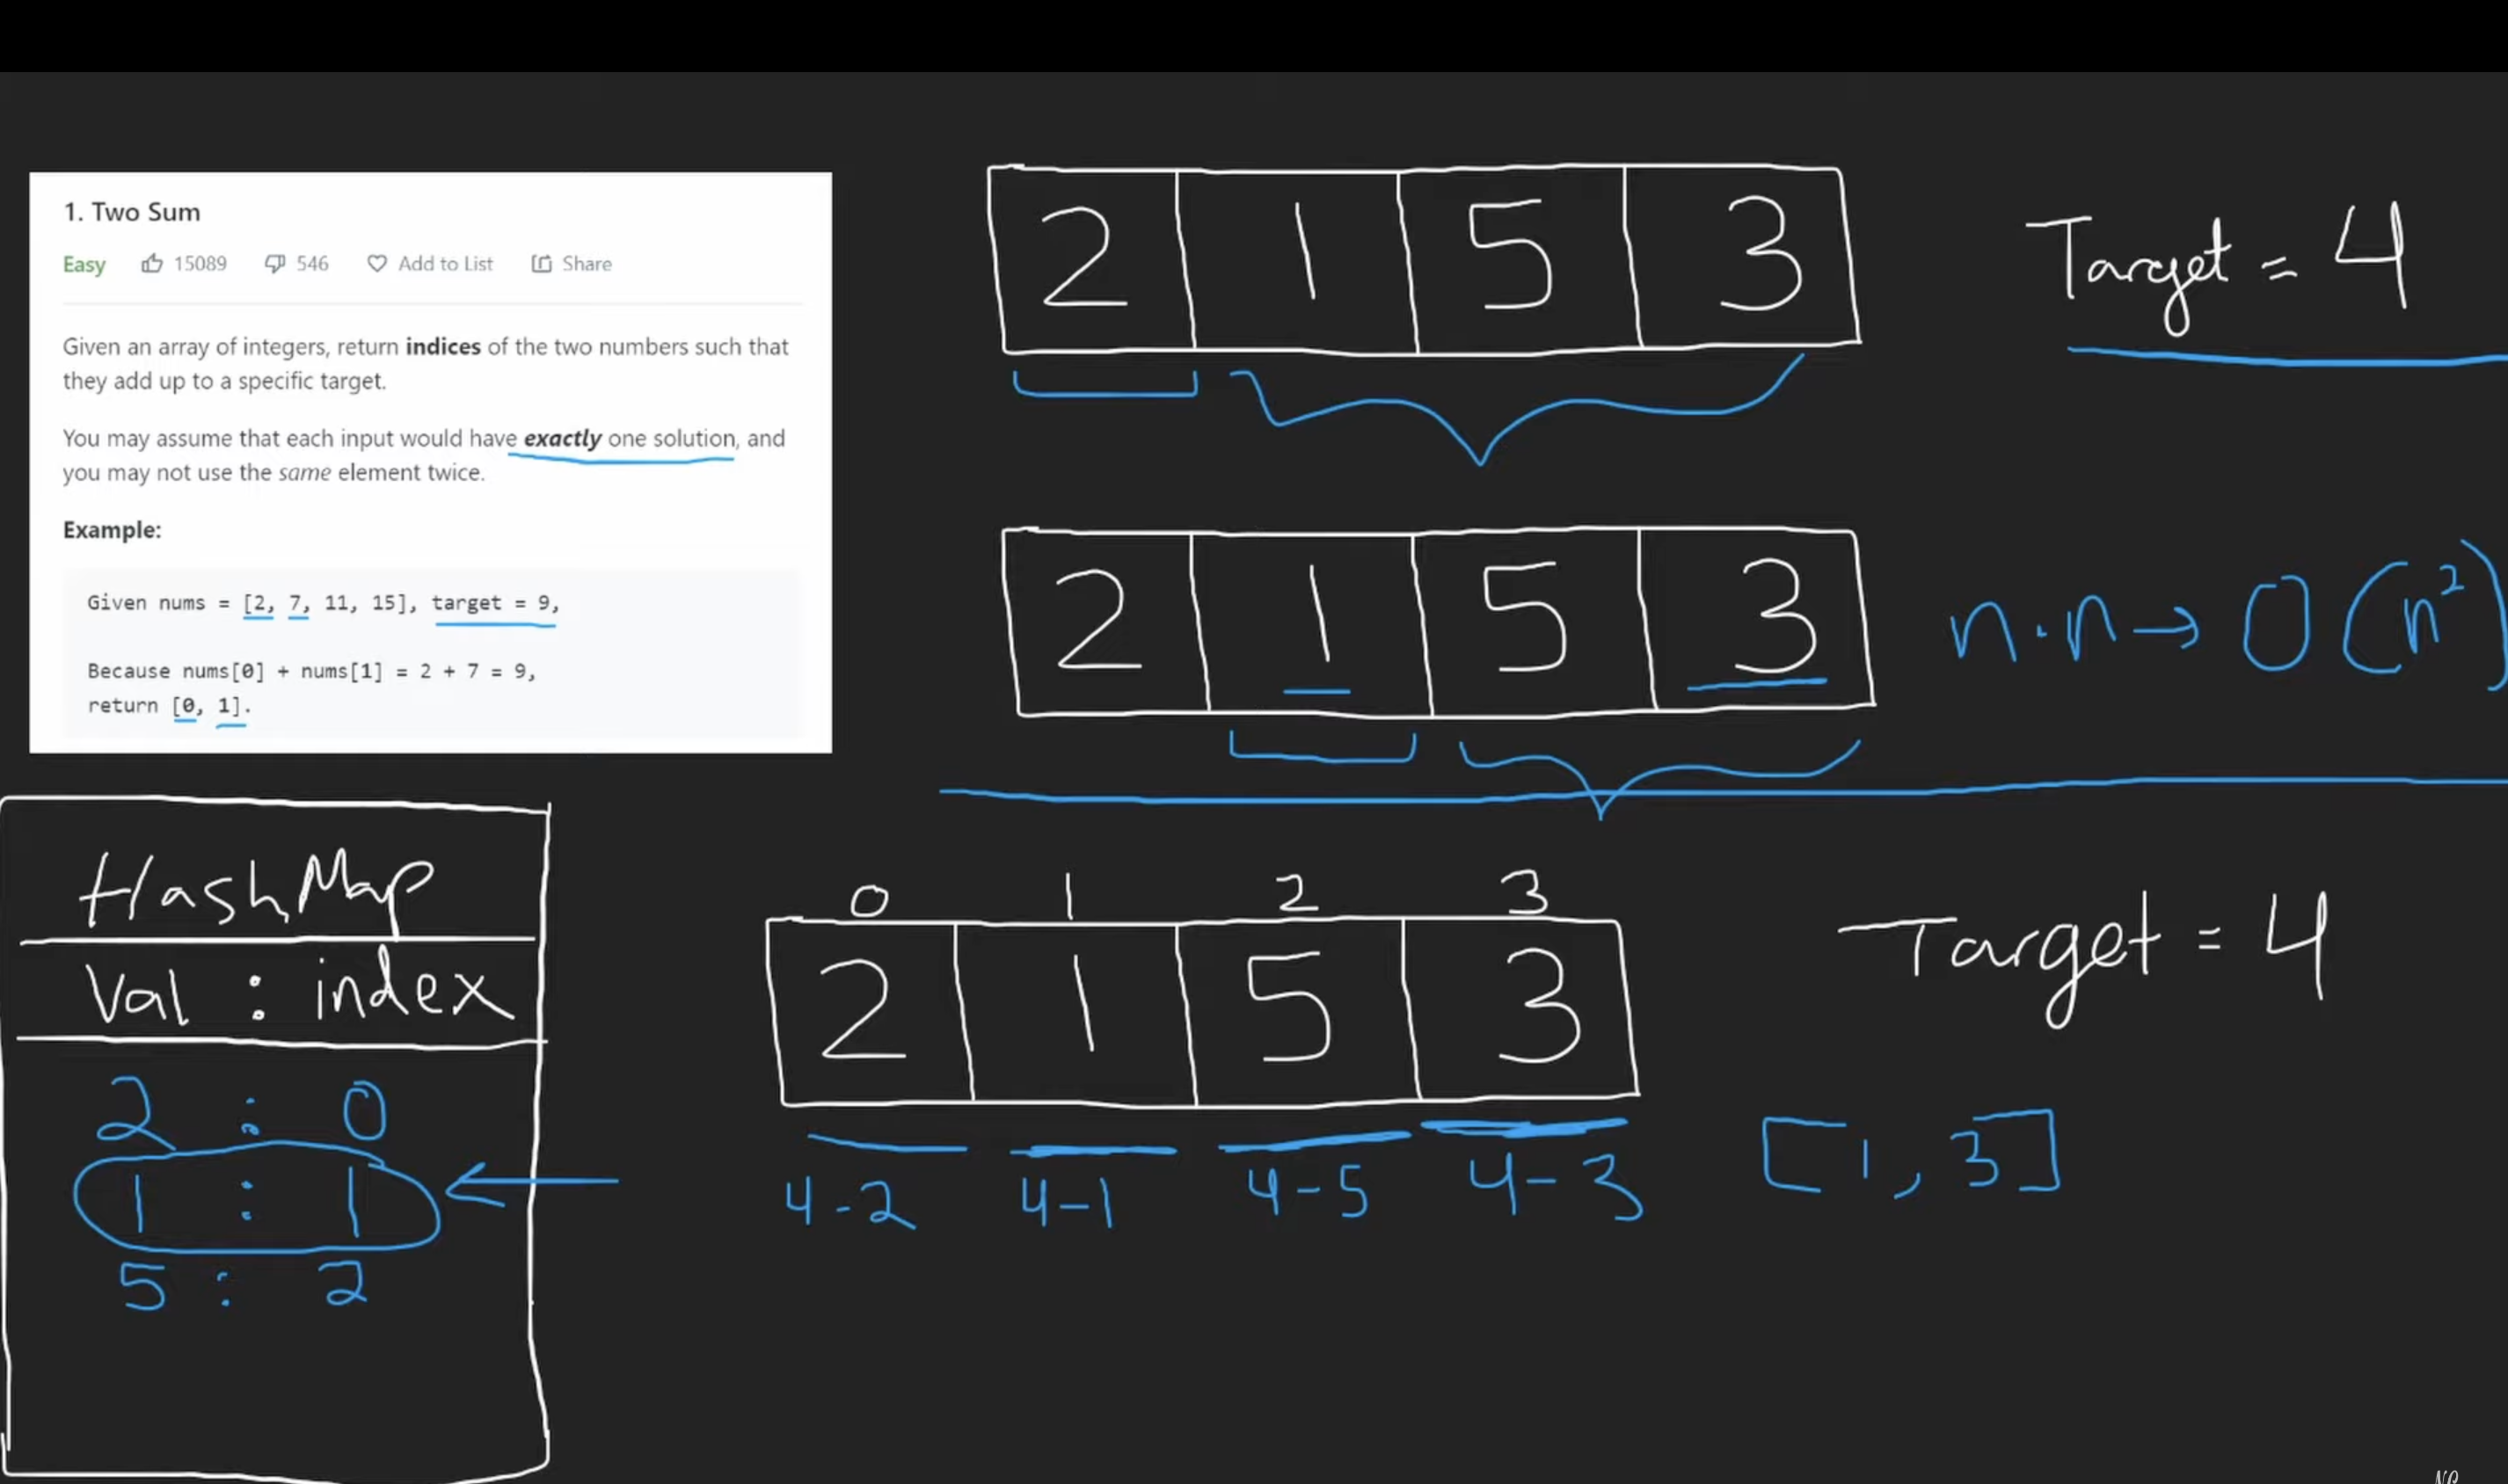 1. Two Sum
Easy 15089 546 Add to List Share
Given an array of integers, return indices of the two numbers such that
they add up to a specific target.
You may assume that each input would have exactly one solution, and
you may not use the same element twice.
Example:
Given nums = [2, 7, 11, 15], target = 9,
Because nums[0] + nums[1] = 2 + 7 = 9,
return [0, 1].
2 1 5 3
Target = 4
2 1 5 3
n·n→ O(n²)
HashMap
Val : index
2 : 0
1 : 1
5 : 2
0 1 2 3
2 1 5 3
Target = 4
4-2 4-1 4-5 4-3
[1, 3]